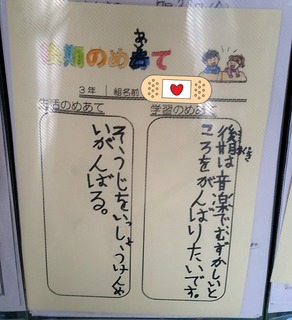 後期のめあて
3年 組名前
学習のめあて
後期は音楽でむずかしいと
ころをがんばりたいです。
生活のめあて
そうじをいっしょうけんめ
いがんばる。